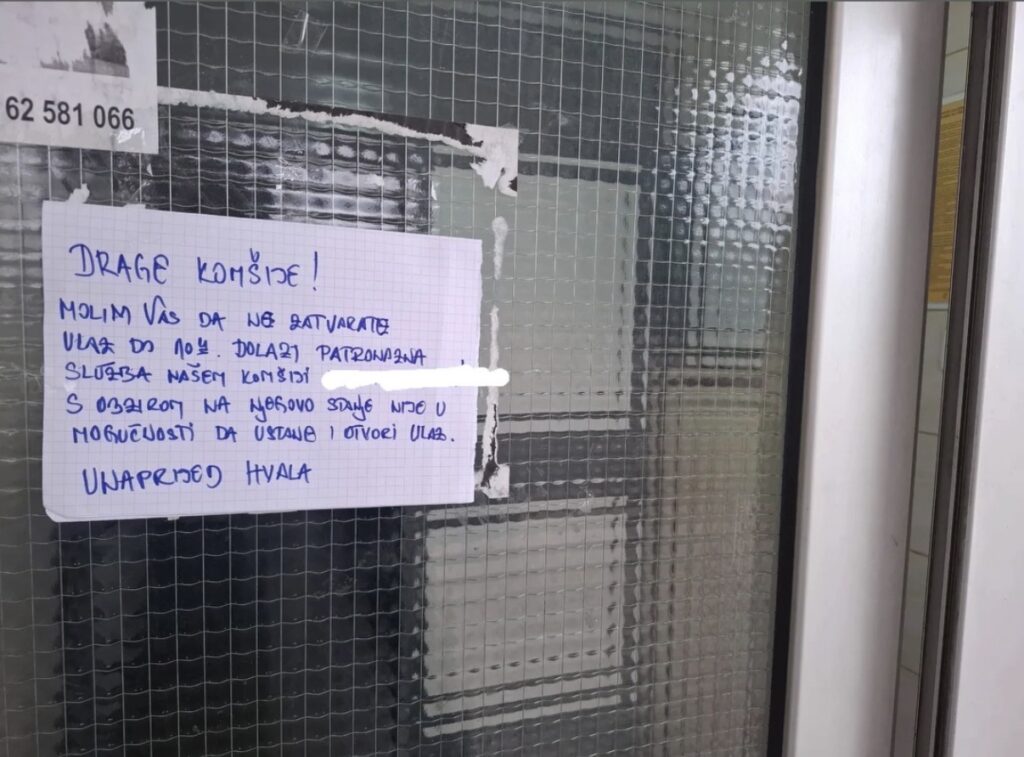 62 581 066
DRAGE KOMŠIJE!
MOLIM VAS DA NE ZATVARATE
ULAZ DO 10 H. DOLAZI PATRONAZNA
SLUŽBA NAŠEM KOMŠIJI
S OBZIROM NA NJEGOVO STANJE NIJE U
MOGUĆNOSTI DA USTANE I OTVORI ULAZ.
UNAPRIJED HVALA